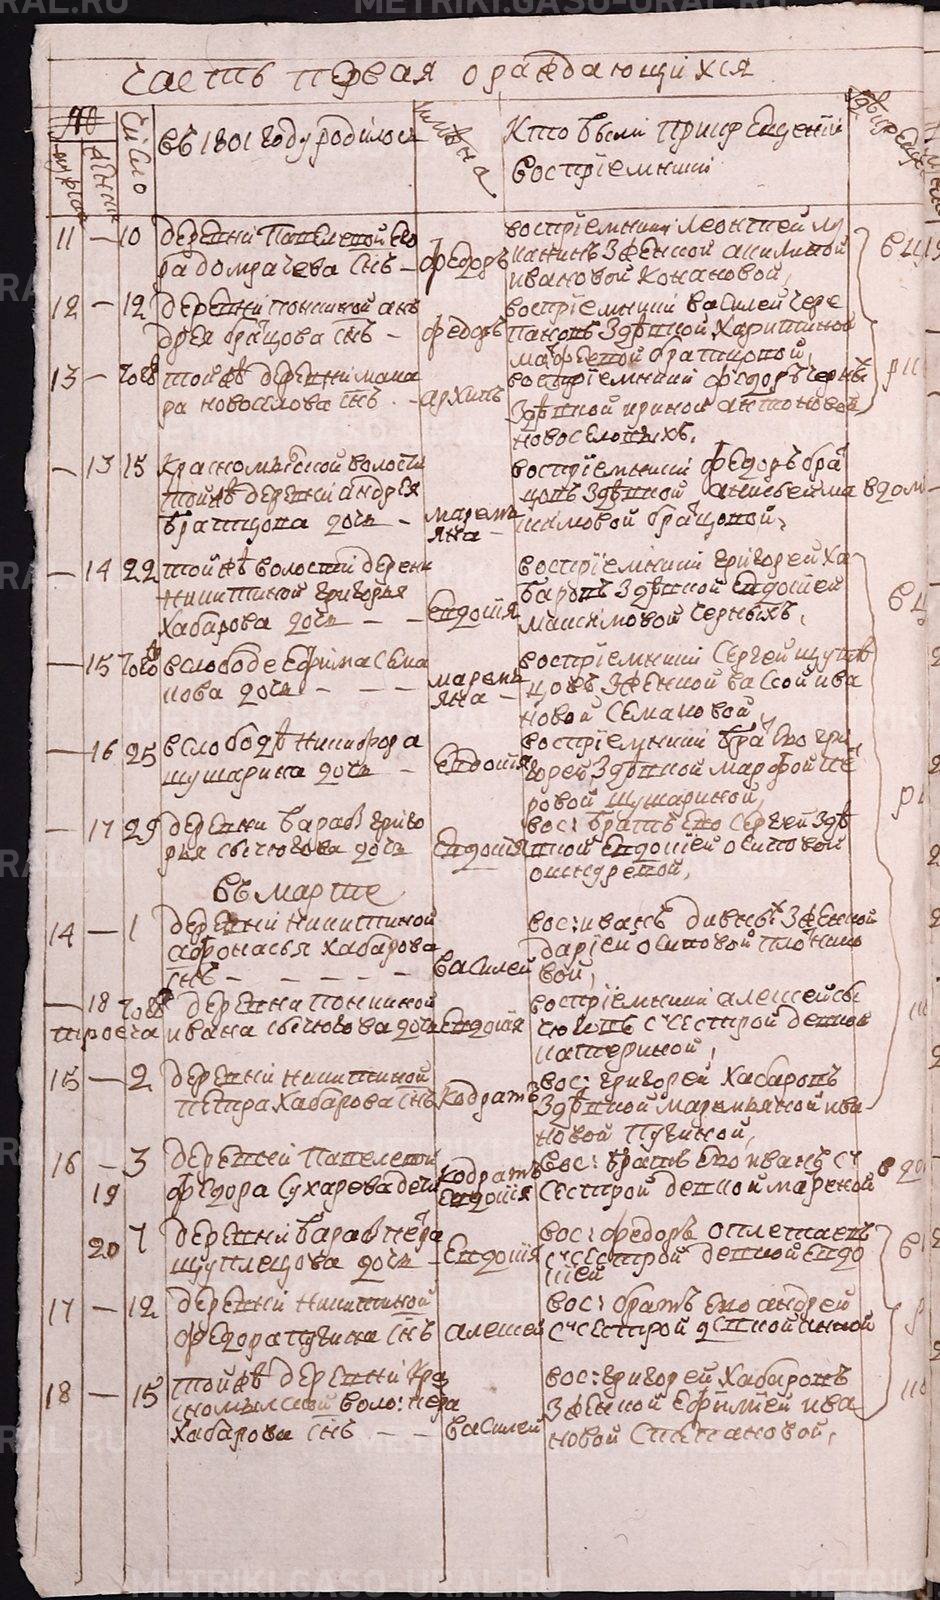 часть первая о раждающихся
№
мужска
женск
Число
въ 1801 году родился
имѣна
Кто были при крещеніи
воспріемники
гдѣ крещены
11 – 10 деревни Папелевой его
ра домрачева сынъ – федоръ
воспріемники леонтей лу
канинъ з женкой акилиной
ивановой конановой,
12 – 12 деревни понкиной ан
дрея бранцова сынъ – федоръ
воспріемники василей чере
пановъ з дѣвкой харитиной
матфеевой братцовой,
13 – тогоже тойже деревни мака
ра новосіолова сынъ – архипъ
воспріемники федоръ черных
з дѣвкой ириной антоновой
новоселовыхъ,
– 13 15 Красномыской волости
тойже деревни андрея
братцова дочь – маремь
яна –
воспріемники федоръ бра
цовъ з дѣвкой анисьей ма
ксимовой брацовой,
– 14 22 тойже волости деревни
никитиной григорья
хабарова дочь – – Евдокія
воспріемники григорей ха
баровъ з дѣвкой Евдокіей
максимовой черныхъ,
– 15 тогоже в слободе Ефима сема
кова дочь – – – маремь
яна –
воспріемники сергей шутв
цовъ з женкой вассой ива
новой семаковой,
– 16 25 в слободѣ никифора
шушарина дочь – Евдокія
воспріемники братъ его гри
горей з дѣвкой марфой пе
ровой шушариной,
– 17 29 деревни барабы григо
рья сычюгова дочь Евдокія
вос: братъ его сергей з дѣ
вкой Евдокіей осиповой
въ марте
14 – 1 деревни никитиной
афонасья хабарова
сынъ – – – – – василей
вос: иванъ дивных з женкой
дарьей осиповой плотнико
вой,
– 18 тогоже деревни понкиной
троеча ивана сычюгова дочь Евдокія
воспріемники алексей сы
чюговъ с сестрой девкой
катериной,
15 – 2 деревни никитиной
петра хабарова сынъ кодратъ
вос: григорей хабаровъ
з дѣвкой маремьяной ива
новой пучиной,
16 – 3 деревней папелевой
19 федора сухарева дети кодратъ
Евдокія
вос: братъ его иванъ с
сестрой девкой марьей
20 7 деревни бараб петра
шуплецова дочь – Евдокія
вос: федоръ
с сестрой девкой Евдо
кіей
17 – 12 деревни никитиной
федора пучина сынъ алексей
вос: братъ его андрей
с сестрой девкой анной
18 – 15 тойже деревни кра
сномыской воло: петра
хабарова сынъ – – василей
вос: григорей хабаровъ
з женкой Ефимьей ива
новой степановой,